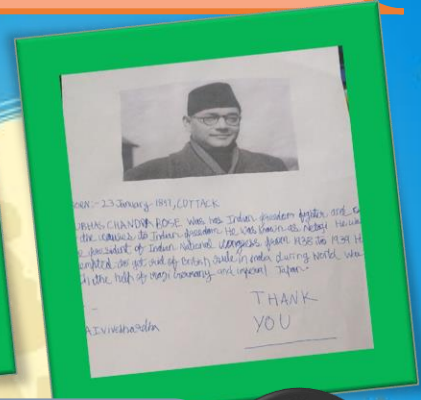 BORN:- 23 January 1897, CUTTACK
SUBHAS CHANDRA BOSE was has Indian freedom fighter and
the causes to Indian freedom. He was known as Netaji. He
president of Indian National Congress from 1938 to 1939. H
empted to get rid of British rule in India during World
the help of nazi Germany and imperial Japan.
THANK
YOU